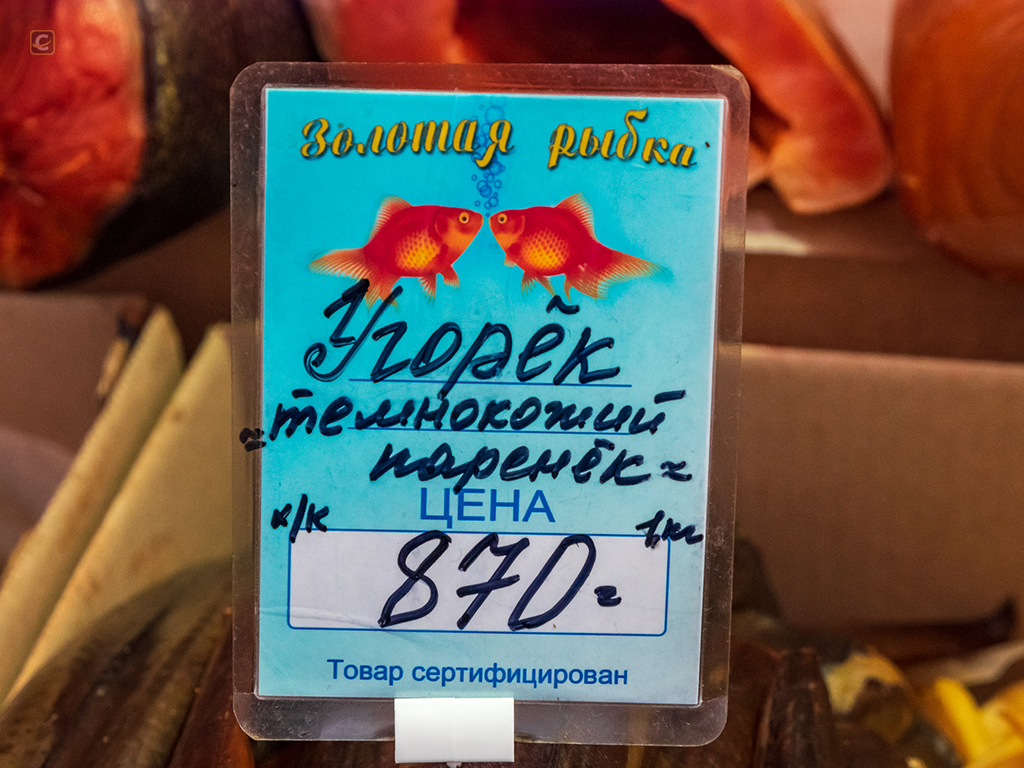 Золотая рыбка
Угорёк
"темнокожий
паренёк"
ЦЕНА
х/к 1 кг
870=
Товар сертифицирован